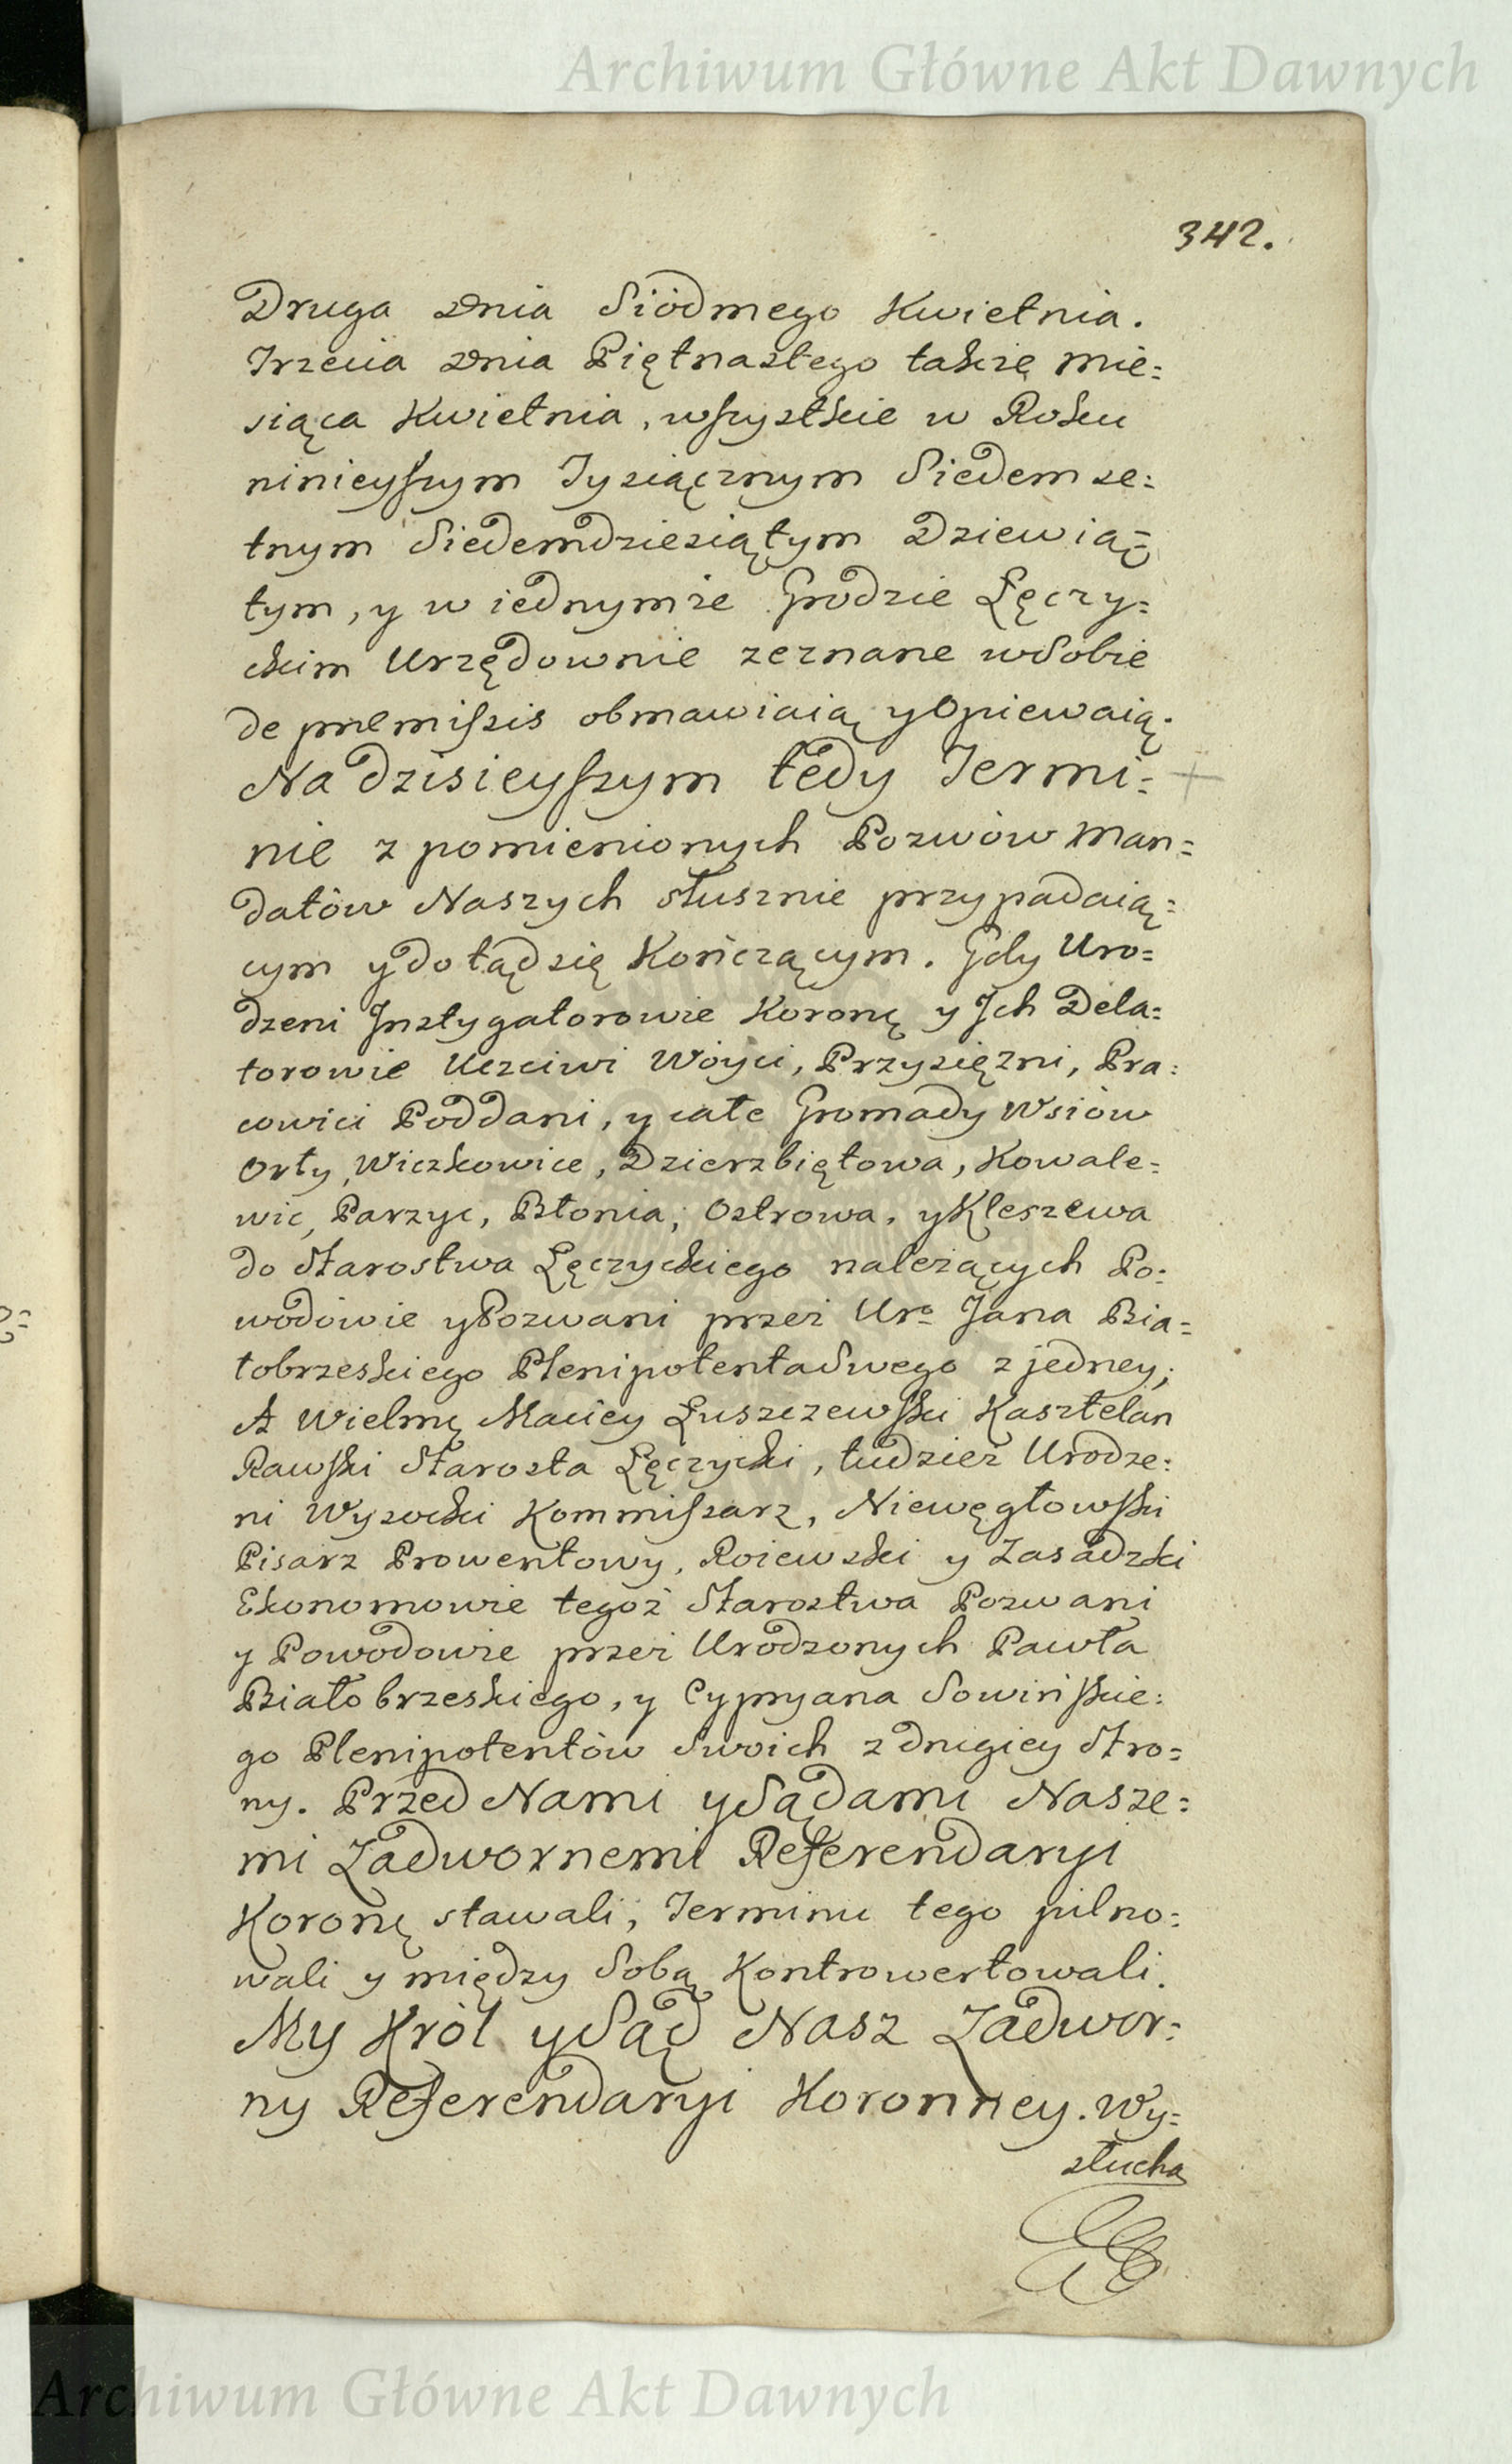 Archiwum Główne Akt Dawnych
342.
Druga dnia Siódmego Kwietnia.
Trzecia dnia Piętnastego także mie=
siąca Kwietnia, wszystkie w Roku
ninieyszym Tysiącznym Siedemse=
tnym Siedemdziesiątym Dziewią=
tym, y w iednymże Grodzie Łęczy=
ckim Urzędownie zeznane w Sobie
de praemissis obmawiaią y Opiewaią.
Na dzisieyszym tedy Termi=
nie z pomienionych Pozwów Man=
datów Naszych słusznie przypadaią=
cym y do tąd się Kończącym. Gdy Uro=
dzeni Instygatorowie Koronę y Ich Dela=
torowie Uczciwi Wóyci, Przysiężni, Pra=
cowici Poddani, y całe Gromady Wsiów
Orły, Wiczkowice, Dzierzbiętowa, Kowale=
wic, Parzyc, Błonia, Ostrowa, y Kleszewa
do Starostwa Łęczyckiego należących Po=
wodowie y Pozwani przez Uro Jana Bia=
łobrzeskiego Plenipotenta Swego z jedney;
A Wielmę Maciey Łuszczewski Kasztelan
Rawski Starosta Łęczycki, tudzież Urodze=
ni Wysocki Kommissarz, Niewęgłowski
Pisarz Prowentowy, Roiewski y Zasadzki
Ekonomowie tegoż Starostwa Pozwani
y Powodowie przez Urodzonych Pawła
Białobrzeskiego, y Cypryana Sowińskie=
go Plenipotentów Swoich z drugiey Stro=
ny. Przed Nami y Sądami Nasze=
mi Zadwornemi Referendaryi
Koronę stawali, Terminu tego pilno=
wali y między Sobą Kontrowertowali.
My Król y Sąd Nasz Zadwor=
ny Referendaryi Koronney. Wy=
słucha
Archiwum Główne Akt Dawnych